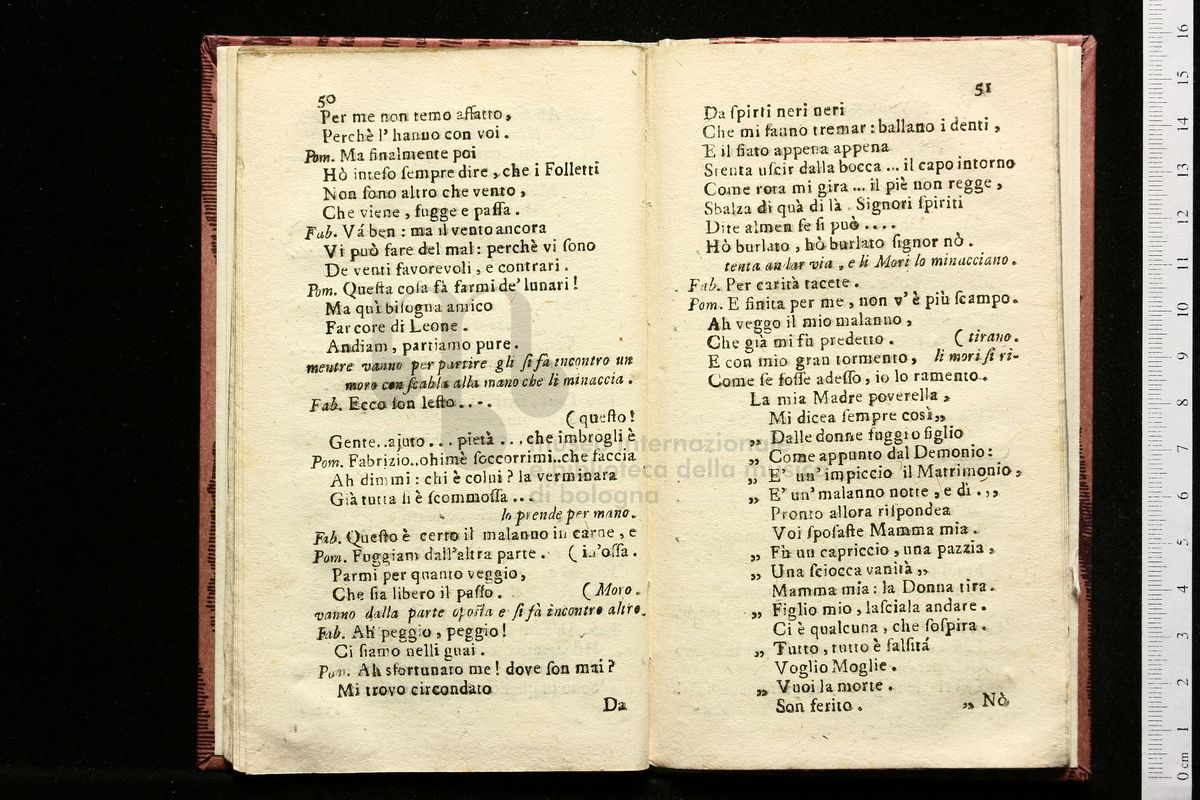 50
Per me non temo affatto,
Perchè l' hanno con voi.
Pom. Ma finalmente poi
Hò inteſo ſempre dire, che i Folletti
Non ſono altro che vento,
Che viene, fugge e paſſa.
Fab. Vá ben: ma il vento ancora
Vi può fare del mal: perchè vi ſono
De venti favorevoli, e contrari.
Pom. Queſta coſa fà farmi de' lunari!
Ma quì biſogna amico
Far core di Leone.
Andiam, partiamo pure.
mentre vanno per partire gli ſi fà incontro un
moro con ſcabla alla mano che li minaccia.
Fab. Ecco ſon leſto....
(queſto!
Gente..ajuto... pietà ... che imbrogli è
Pom. Fabrizio..ohimè ſoccorrimi..che faccia
Ah dimmi: chi è colui? la verminara
Già tutta ſi è ſcommoſſa...
lo prende per mano.
Fab. Queſto è certo il malanno in carne, e
Pom. Fuggiam dall'altra parte. (in'oſſa.
Parmi per quanto veggio,
Che ſia libero il paſſo. (Moro.
vanno dalla parte opoſta e ſi fà incontro altro.
Fab. Ah peggio, peggio!
Ci ſiamo nelli guai.
Pom. Ah sfortunato me! dove ſon mai?
Mi trovo circondato
Da
51
Da ſpirti neri neri
Che mi fanno tremar: ballano i denti,
E il fiato appena appena
Stenta uſcir dalla bocca ... il capo intorno
Come rota mi gira ... il piè non regge,
Sbalza di quà di là. Signori ſpiriti
Dite almen ſe ſi può....
Hò burlato, hò burlato ſignor nò.
tenta andar via, e li Mori lo minacciano.
Fab. Per carità tacete.
Pom. E finita per me, non v' è più ſcampo.
Ah veggo il mio malanno,
Che già mi fù predetto. (tirano.
E con mio gran tormento, li mori ſi ri-
Come ſe foſſe adeſſo, io lo ramento.
La mia Madre poverella,
Mi dicea ſempre così,,
,, Dalle donne fuggi o figlio
,, Come appunto dal Demonio:
,, E' un' impiccio il Matrimonio,
,, E' un' malanno notte, e dì.,,
Pronto allora riſpondea
Voi ſpoſaſte Mamma mia.
,, Fù un capriccio, una pazzia,
,, Una ſciocca vanità,,
Mamma mia: la Donna tira.
,, Figlio mio, laſciala andare.
Ci è qualcuna, che ſoſpira.
,, Tutto, tutto è falſitá
Voglio Moglie.
,, Vuoi la morte.
Son ferito.
,, Nò
museo internazionale
e biblioteca della musica
di bologna
0 cm 1 2 3 4 5 6 7 8 9 10 11 12 13 14 15 16